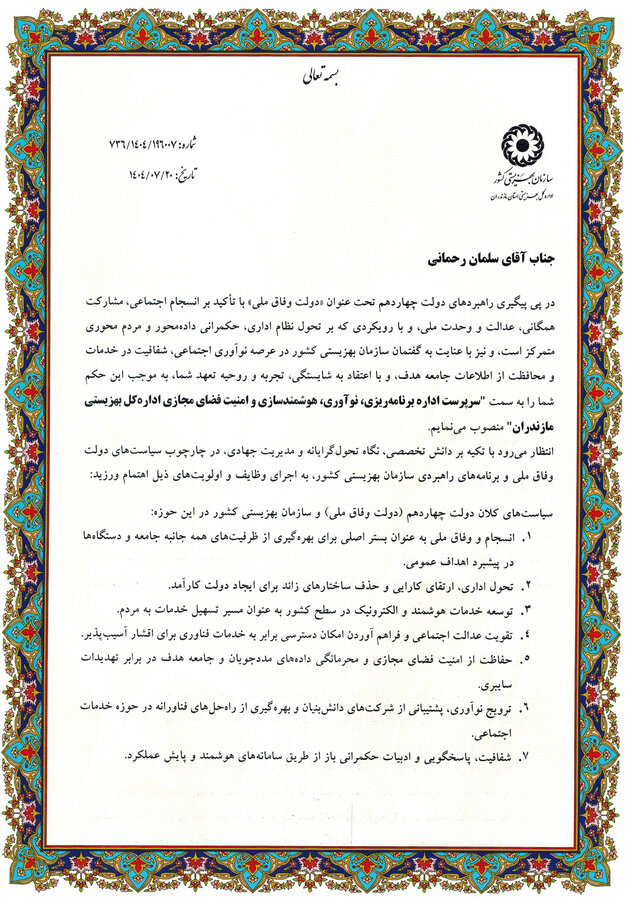 بسمه تعالی
شماره: ۷۳۶/۱۴۰۴/۱۹۶۰۰۷
تاریخ: ۱۴۰۴/۰۷/۲۰
سازمان بهزیستی کشور
اداره کل بهزیستی استان مازندران
جناب آقای سلمان رحمانی
در پی پیگیری راهبردهای دولت چهاردهم تحت عنوان «دولت وفاق ملی» با تأکید بر انسجام اجتماعی، مشارکت
همگانی، عدالت و وحدت ملی، و با رویکردی که بر تحول نظام اداری، حکمرانی داده‌محور و مردم محوری
متمرکز است، و نیز با عنایت به گفتمان سازمان بهزیستی کشور در عرصه نوآوری اجتماعی، شفافیت در خدمات
و محافظت از اطلاعات جامعه هدف، و با اعتقاد به شایستگی، تجربه و روحیه تعهد شما، به موجب این حکم
شما را به سمت "سرپرست اداره برنامه‌ریزی، نوآوری، هوشمندسازی و امنیت فضای مجازی اداره‌کل بهزیستی
مازندران" منصوب می‌نمایم.
انتظار می‌رود با تکیه بر دانش تخصصی، نگاه تحول‌گرایانه و مدیریت جهادی، در چارچوب سیاست‌های دولت
وفاق ملی و برنامه‌های راهبردی سازمان بهزیستی کشور، به اجرای وظایف و اولویت‌های ذیل اهتمام ورزید:
سیاست‌های کلان دولت چهاردهم (دولت وفاق ملی) و سازمان بهزیستی کشور در این حوزه:
۱. انسجام و وفاق ملی به عنوان بستر اصلی برای بهره‌گیری از ظرفیت‌های همه جانبه جامعه و دستگاه‌ها
در پیشبرد اهداف عمومی.
۲. تحول اداری، ارتقای کارایی و حذف ساختارهای زائد برای ایجاد دولت کارآمد.
۳. توسعه خدمات هوشمند و الکترونیک در سطح کشور به عنوان مسیر تسهیل خدمات به مردم.
۴. تقویت عدالت اجتماعی و فراهم آوردن امکان دسترسی برابر به خدمات فناوری برای اقشار آسیب‌پذیر.
۵. حفاظت از امنیت فضای مجازی و محرمانگی داده‌های مددجویان و جامعه هدف در برابر تهدیدات
سایبری.
۶. ترویج نوآوری، پشتیبانی از شرکت‌های دانش‌بنیان و بهره‌گیری از راه‌حل‌های فناورانه در حوزه خدمات
اجتماعی.
۷. شفافیت، پاسخگویی و ادبیات حکمرانی باز از طریق سامانه‌های هوشمند و پایش عملکرد.